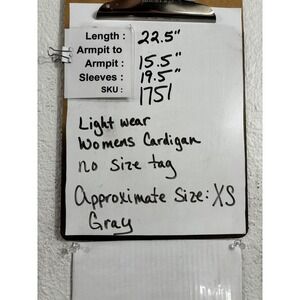 Length : 22.5"
Armpit to
Armpit : 15.5"
Sleeves : 19.5"
SKU : 1751
Light wear
Womens Cardigan
no size tag
Approximate Size: XS
Gray